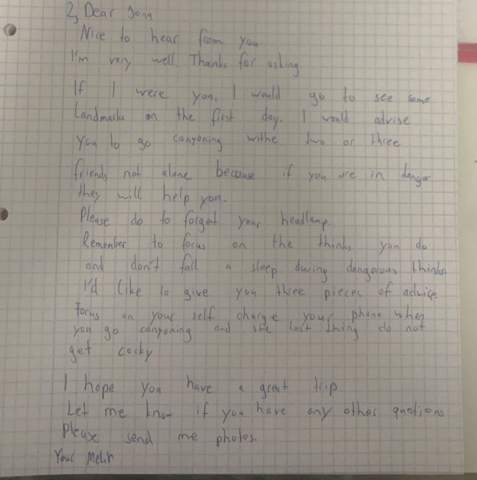 2, Dear Jom
Nice to hear from you
I'm very well. Thanks for asking.
If I were you, I would go to see some
Landmarks on the first day. I would advise
you to go canyoning withe two or three
friends not alone because if you are in danger
they will help you.
Please do to forget your headlamp
Remember to focus on the thinks you do
and don't fall a sleep during dangerous thinks
I'd like to give you three pieces of advice
Focus on your self charge your phone when
you go canyoning and the last thing do not
get cocky
I hope you have a great trip
Let me know if you have any other quetions
Please send me photos.
Your Melih